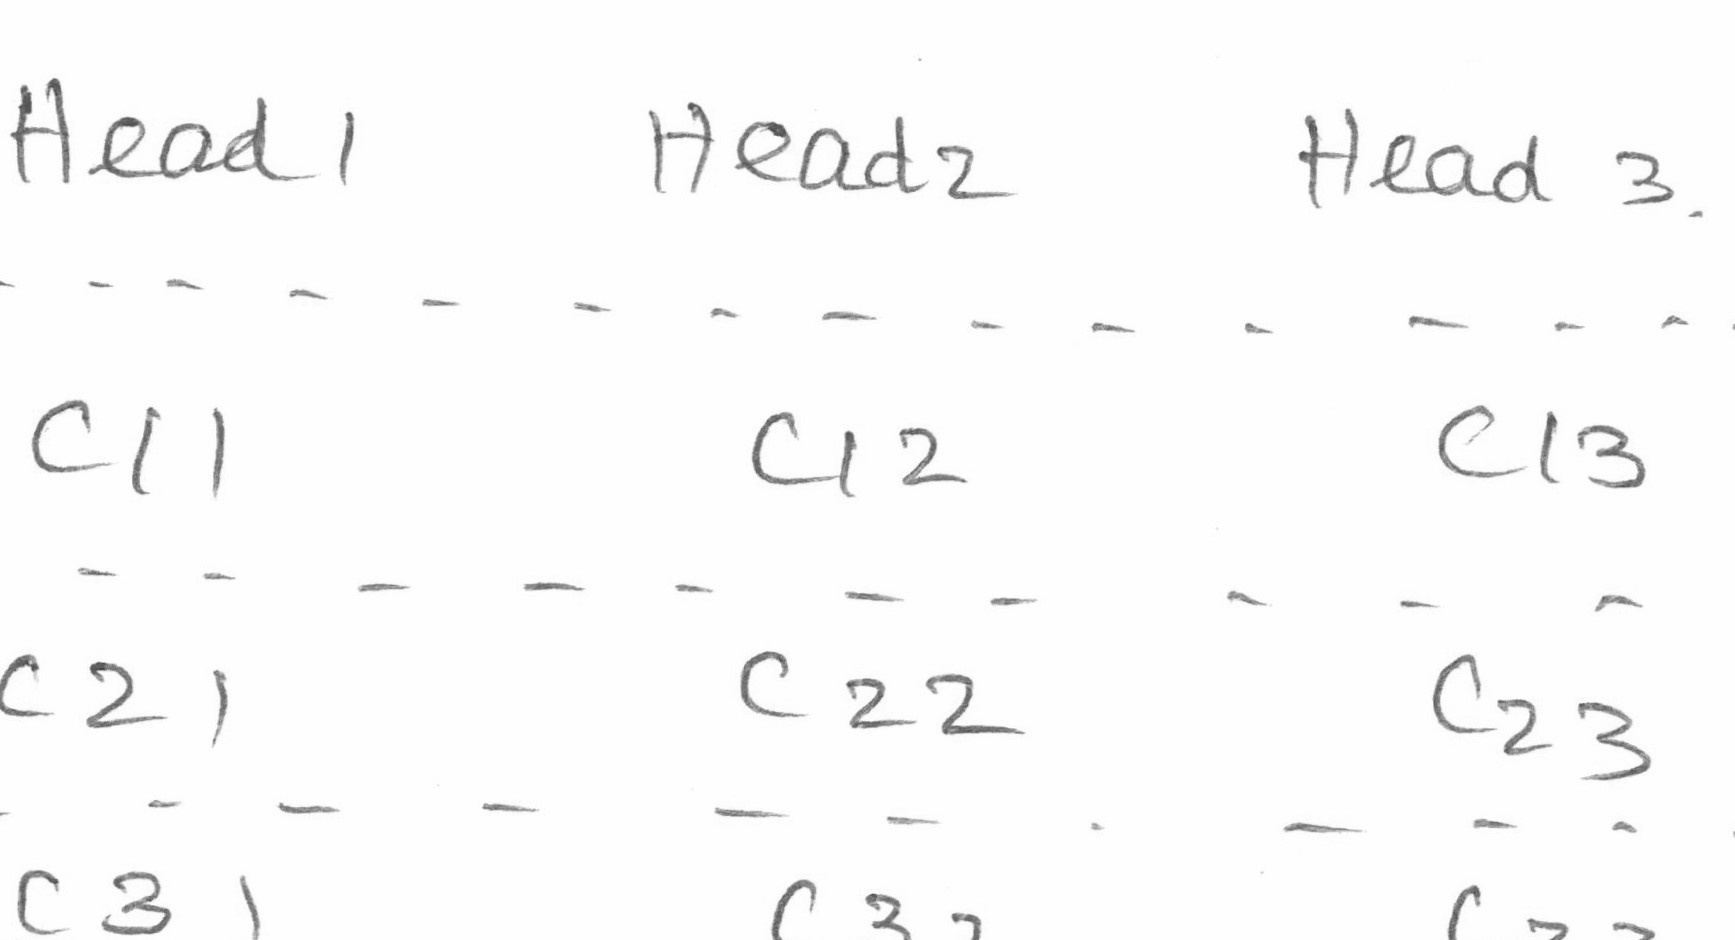 Head 1 Head 2 Head 3.
C11 C12 C13
C21 C22 C23
C31